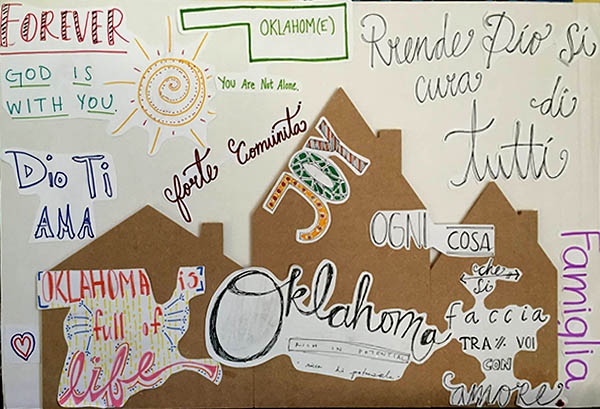 FOREVER
GOD IS
WITH YOU.
OKLAHOM(E)
You Are Not Alone.
Prende Dio Si
cura di
tutti
Dio Ti
AMA
forte Comunita
JOY
OGNI COSA
che
si
faccia
TRA VOI
CON
amore
OKLAHOMA is
full of
life
Oklahoma
RICH IN POTENTIAL
ricca di potenziale
Famiglia